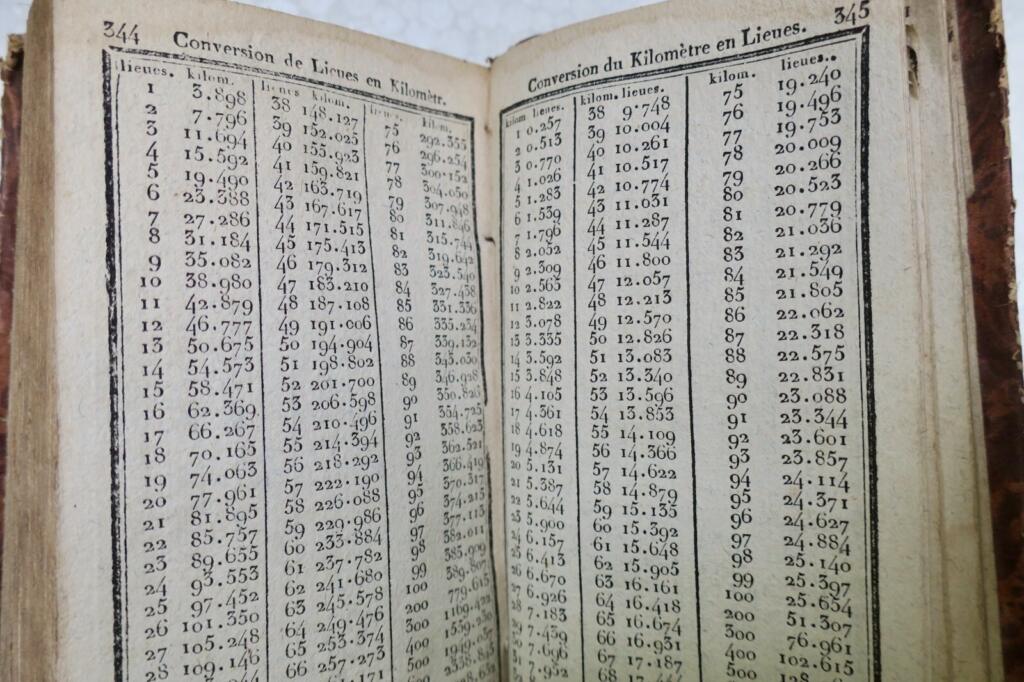 344
Conversion de Lieues en Kilomètr.
lieues. kilom.
1 3.898
2 7.796
3 11.694
4 15.592
5 19.490
6 23.388
7 27.286
8 31.184
9 35.082
10 38.980
11 42.879
12 46.777
13 50.675
14 54.573
15 58.471
16 62.369
17 66.267
18 70.165
19 74.063
20 77.961
21 81.895
22 85.757
23 89.655
24 93.553
25 97.452
26 101.350
27 105.248
28 109.146
lieues kilom.
38 148.127
39 152.025
40 155.923
41 159.821
42 163.719
43 167.617
44 171.515
45 175.413
46 179.312
47 183.210
48 187.108
49 191.006
50 194.904
51 198.802
52 201.700
53 206.598
54 210.496
55 214.394
56 218.292
57 222.190
58 226.088
59 229.986
60 233.884
61 237.782
62 241.680
63 245.578
64 249.476
65 253.374
66 257.273
lieues kilom.
75 292.355
76 296.254
77 300.152
78 304.050
79 307.948
80 311.846
81 315.744
82 319.642
83 323.540
84 327.438
85 331.336
86 335.234
87 339.132
88 343.030
89 346.928
90 350.826
91 354.725
92 358.623
93 362.521
94 366.419
95 370.317
96 374.215
97 377.113
98 382.011
99 385.909
100 389.807
200 779.615
300 1169.422
400 1559.230
500 1949.037
345
Conversion du Kilomètre en Lieues.
kilom lieues.
1 0.257
2 0.513
3 0.770
4 1.026
5 1.283
6 1.539
7 1.796
8 2.052
9 2.309
10 2.565
11 2.822
12 3.078
13 3.335
14 3.592
15 3.848
16 4.105
17 4.361
18 4.618
19 4.874
20 5.131
21 5.387
22 5.644
23 5.900
24 6.157
25 6.413
26 6.670
27 6.926
28 7.183
29 7.439
30 7.696
31 7.952
kilom. lieues.
38 9.748
39 10.004
40 10.261
41 10.517
42 10.774
43 11.031
44 11.287
45 11.544
46 11.800
47 12.057
48 12.213
49 12.570
50 12.826
51 13.083
52 13.340
53 13.596
54 13.853
55 14.109
56 14.366
57 14.622
58 14.879
59 15.135
60 15.392
61 15.648
62 15.905
63 16.161
64 16.418
65 16.674
66 16.931
67 17.187
kilom. lieues..
75 19.240
76 19.496
77 19.753
78 20.009
79 20.266
80 20.523
81 20.779
82 21.036
83 21.292
84 21.549
85 21.805
86 22.062
87 22.318
88 22.575
89 22.831
90 23.088
91 23.344
92 23.601
93 23.857
94 24.114
95 24.371
96 24.627
97 24.884
98 25.140
99 25.397
100 25.654
200 51.307
300 76.961
400 102.615
500